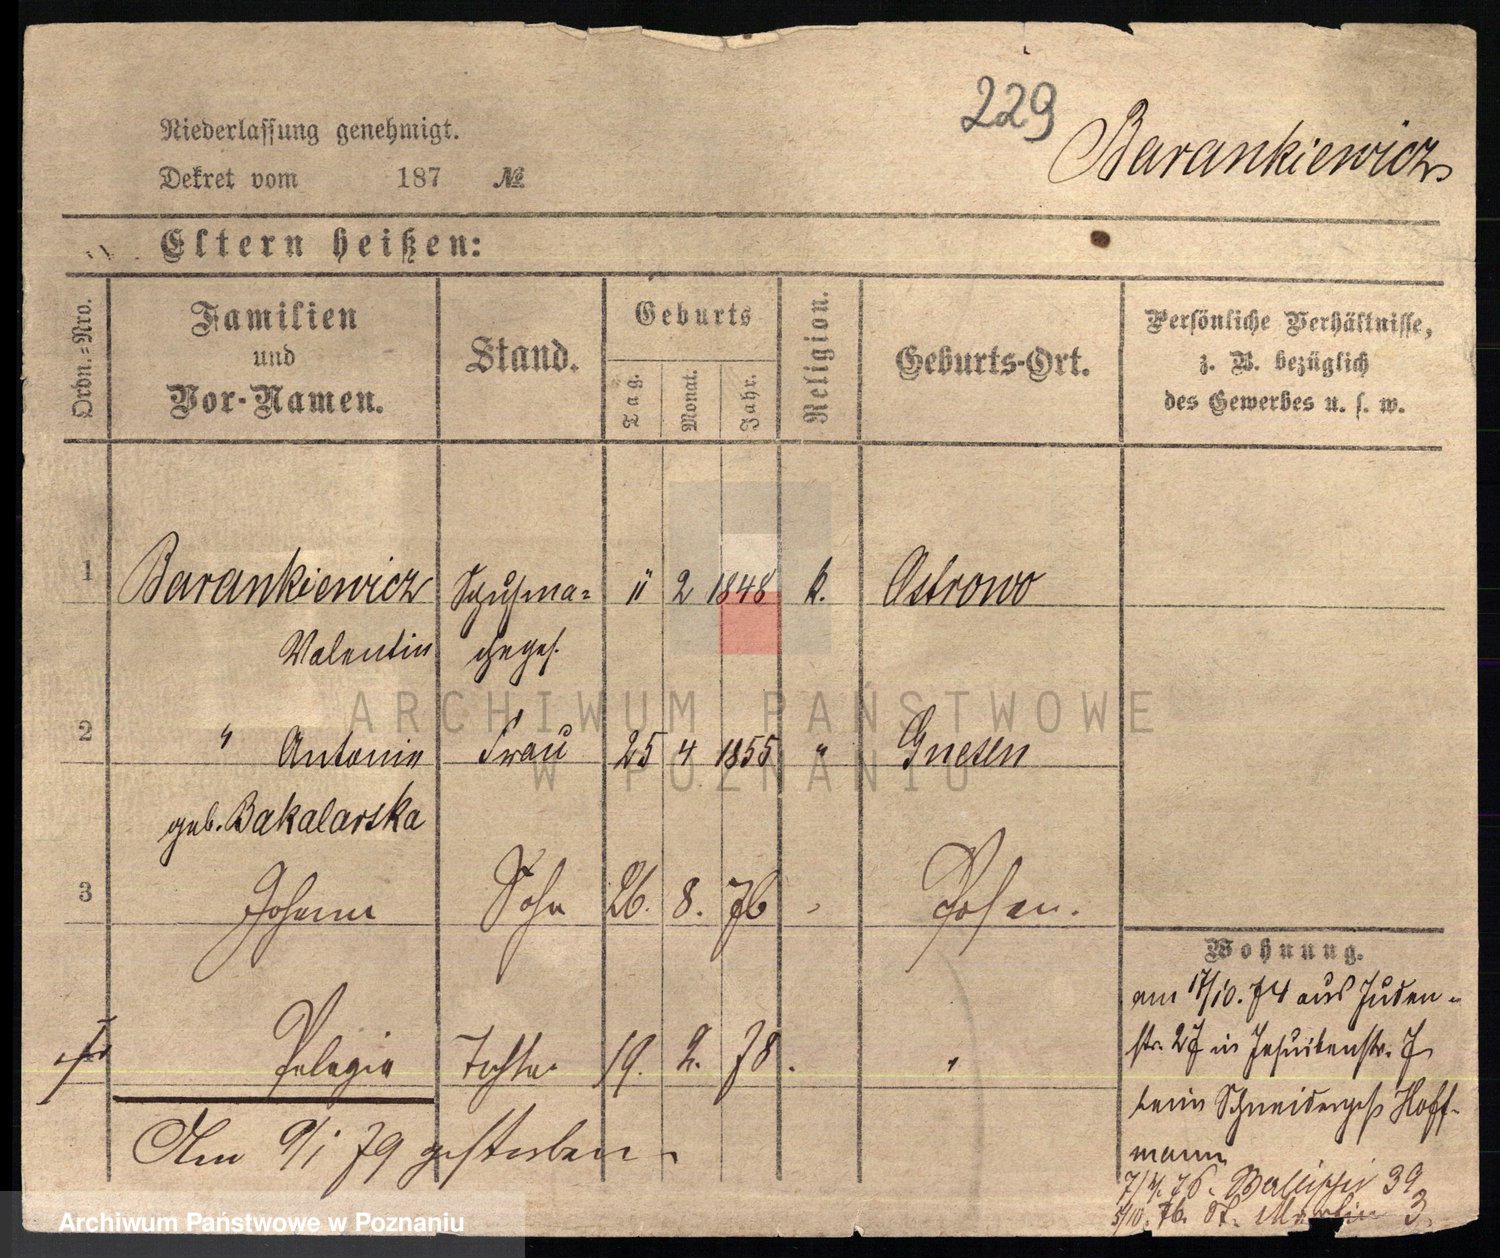 229
Barankiewicz
Niederlassung genehmigt.
Dekret vom 187 №
Eltern heißen:
Ordn.=Nro.
Familien
und
Vor-Namen.
Stand.
Geburts
Tag.
Monat.
Jahr.
Religion.
Geburts-Ort.
Persönliche Verhältnisse,
z. B. bezüglich
des Gewerbes u. s. w.
1 Barankiewicz Schuhma= 11 2 1848 k. Ostrowo
Valentin chergs.
ARCHIWUM PAŃSTWOWE
W POZNANIU
2 " Antonie Frau 25 4 1855 " Gnesen
geb. Bakalarska
3 Johann Sohn 26. 8. 76 Posen.
Pelagia Tochter 19. 2. 78. "
Am 9/1 79 gestorben
Wohnung.
am 17/10. 74 aus Juden-
str. 27 in Jesuitenstr. 7
beim Schneiderges Hoff-
mann
7/4. 76. 39
5/10. 76. St. Martin 3.
Archiwum Państwowe w Poznaniu